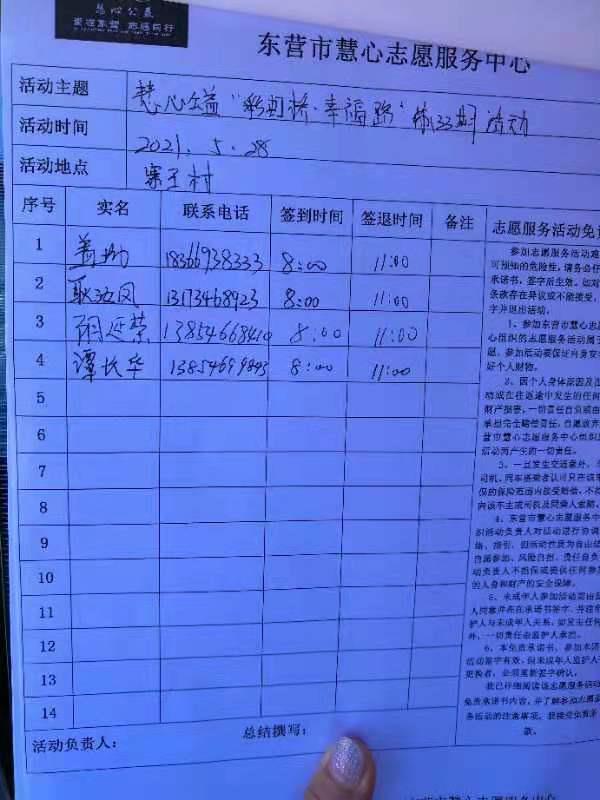 慧心公益
东营市慧心志愿服务中心
活动主题 慧心公益"彩虹桥·幸福路"第33期活动
活动时间 2021.5.28
活动地点 寨王村
序号 实名 联系电话 签到时间 签退时间 备注 志愿服务活动免责
1 18366938333 8:00 11:00
2 13173468923 8:00 11:00
3 13854668410 8:00 11:00
4 谭长华 13854699843 8:00 11:00
5
6
7
8
9
10
11
12
13
14
参加志愿服务活动难
可预知的危险性，请务必仔
承诺书，签字后生效。如对
条款存在异议或不能接受，
字并退出活动。
1、参加东营市慧心志愿
心组织的志愿服务活动属于
愿。参加活动要保证自身安全
好个人财物。
2、因个人身体原因及注
动或在往返途中发生的任何
财产损害，一切责任自负或由
承担完全赔偿责任，自愿放弃
营市慧心志愿服务中心组织
活动而产生的一切责任。
3、一旦发生交通意外，
司机、同车搭乘者认可只在该车
保的保险范围内接受赔偿，不
向该车主或司机及同乘人索赔。
4、东营市慧心志愿服务中
织活动负责人对活动进行协调
自愿参加、风险自担、责任自负
动负责人不担保或提供任何参加
的人身和财产的安全保障。
5、未成年人参加活动需由
人同意并在承诺书签字，并注
护人与未成年人关系，如发生任何
外，一切责任由监护人承担。
6、本免责承诺书，参加本次
活动签字有效，但未成年人监护人
更换者，必须重新签字确认。
我已详细阅读该志愿服务活动
免责承诺书内容，并了解参加志愿
务活动的注意事项。我接受免责
款。
活动负责人： 总结撰写：